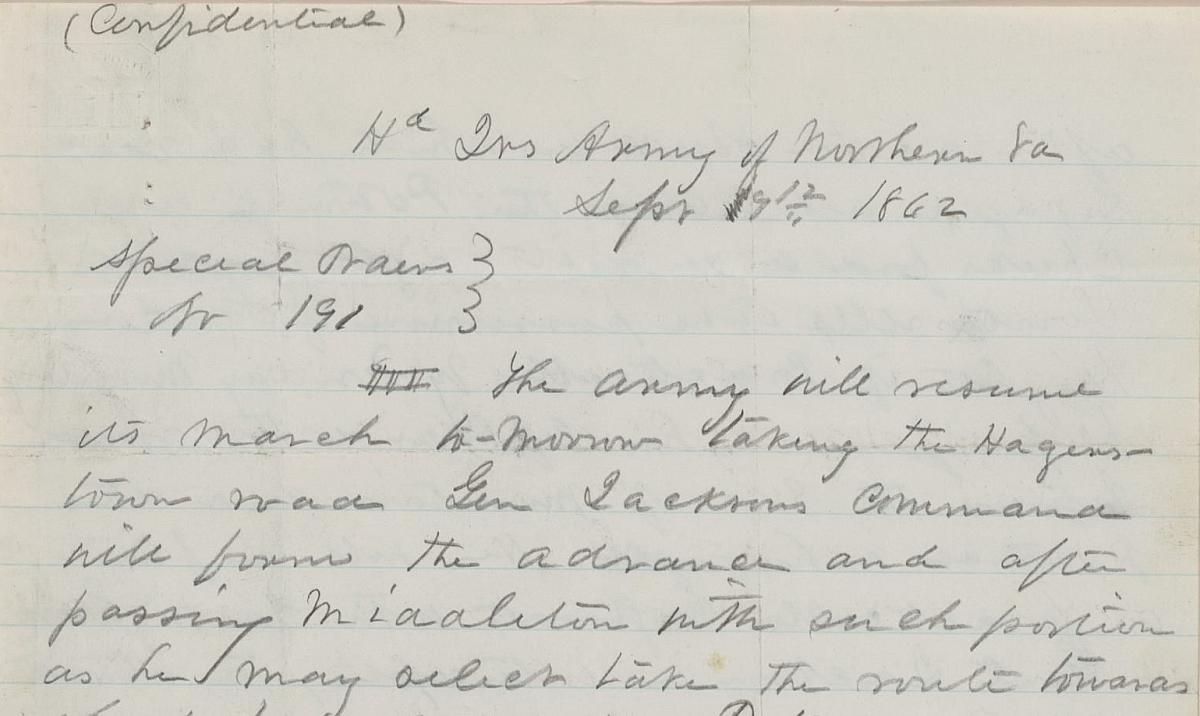 (Confidential)
Hd Qrs Army of Northern Va
Sept 9th 1862
Special Orders }
No 191 }
III The army will resume
its march to-morrow taking the Hagers-
town road Gen Jacksons Command
will form the advance and after
passing Middleton with such portion
as he may select take the route towards